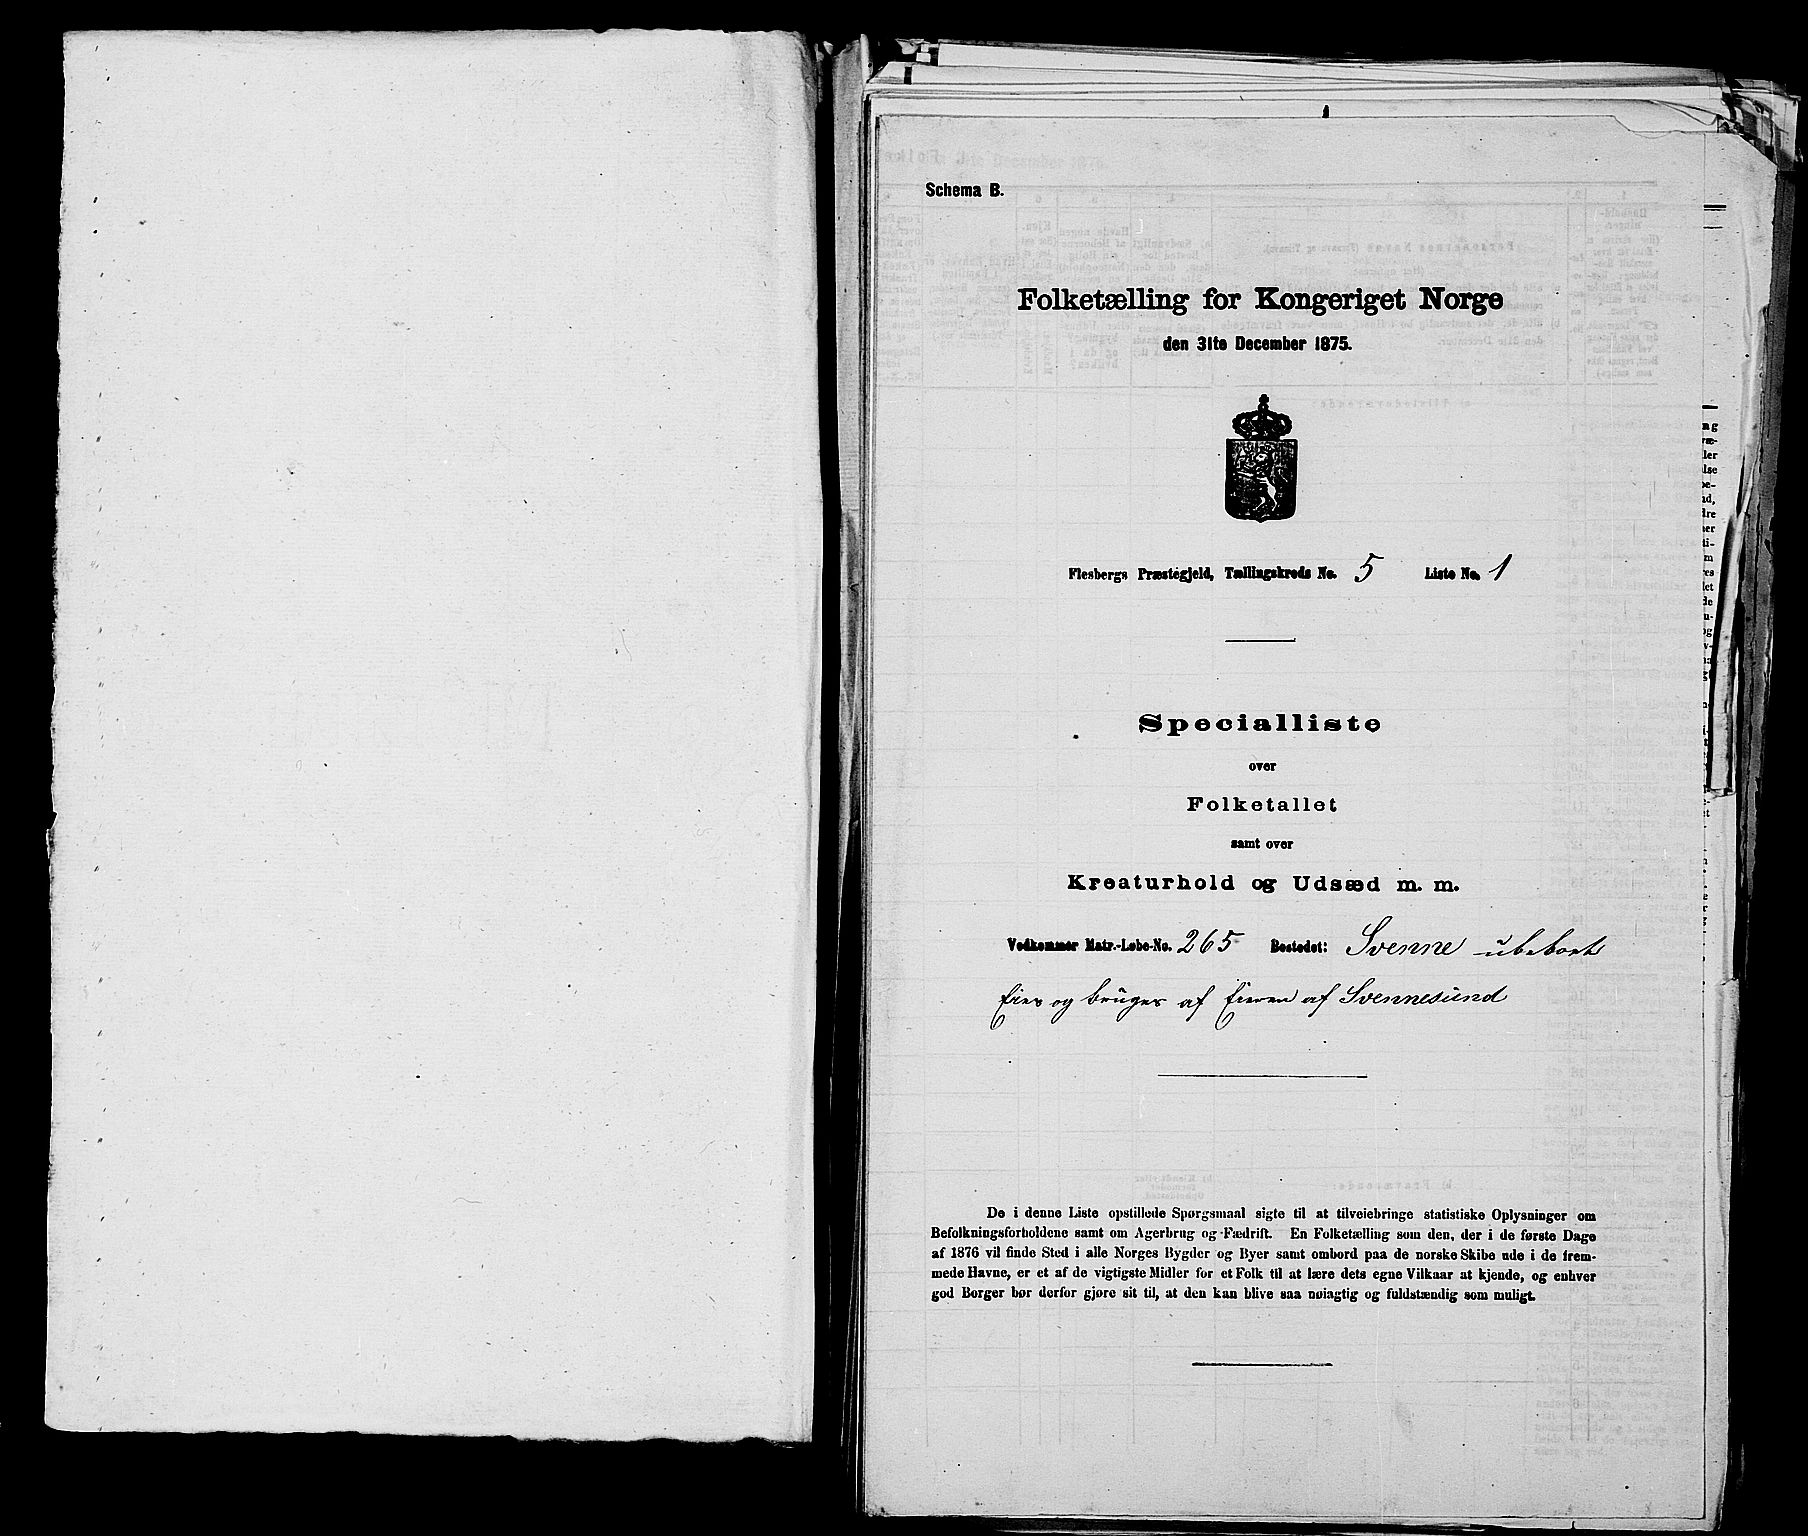 Schema B.
Folketælling for Kongeriget Norge
den 31te December 1875.
Flesbergs Præstegjeld, Tællingskreds No. 5 Liste No. 1
Specialliste
over
Folketallet
samt over
Kreaturhold og Udsæd m. m.
Vedkommer Matr.-Løbe-No. 265 Bostedet: Svenne ubeboet
Eies og bruges af Eieren af Svennesund
De i denne Liste opstillede Spørgsmaal sigte til at tilveiebringe statistiske Oplysninger om
Befolkningsforholdene samt om Agerbrug og Fædrift. En Folketælling som den, der i de første Dage
af 1876 vil finde Sted i alle Norges Bygder og Byer samt ombord paa de norske Skibe ude i de frem-
mede Havne, er et af de vigtigste Midler for et Folk til at lære dets egne Vilkaar at kjende, og enhver
god Borger bør derfor gjøre sit til, at den kan blive saa nøiagtig og fuldstændig som muligt.